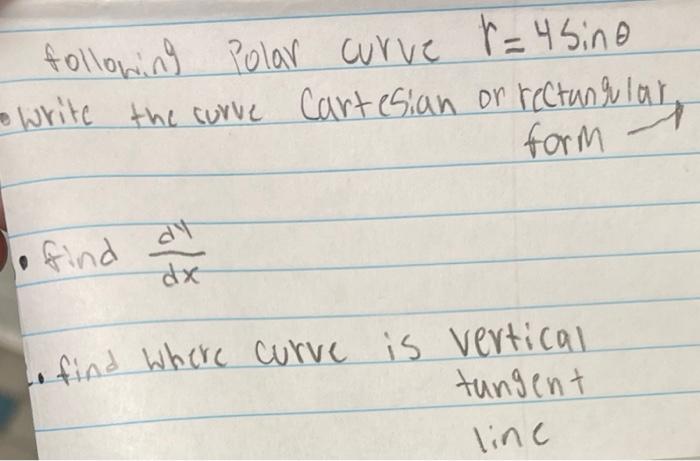 following Polar curve r=4sinθ
• write the curve Cartesian or rectangular
form →
• find dy/dx
• find where curve is vertical
tangent
line